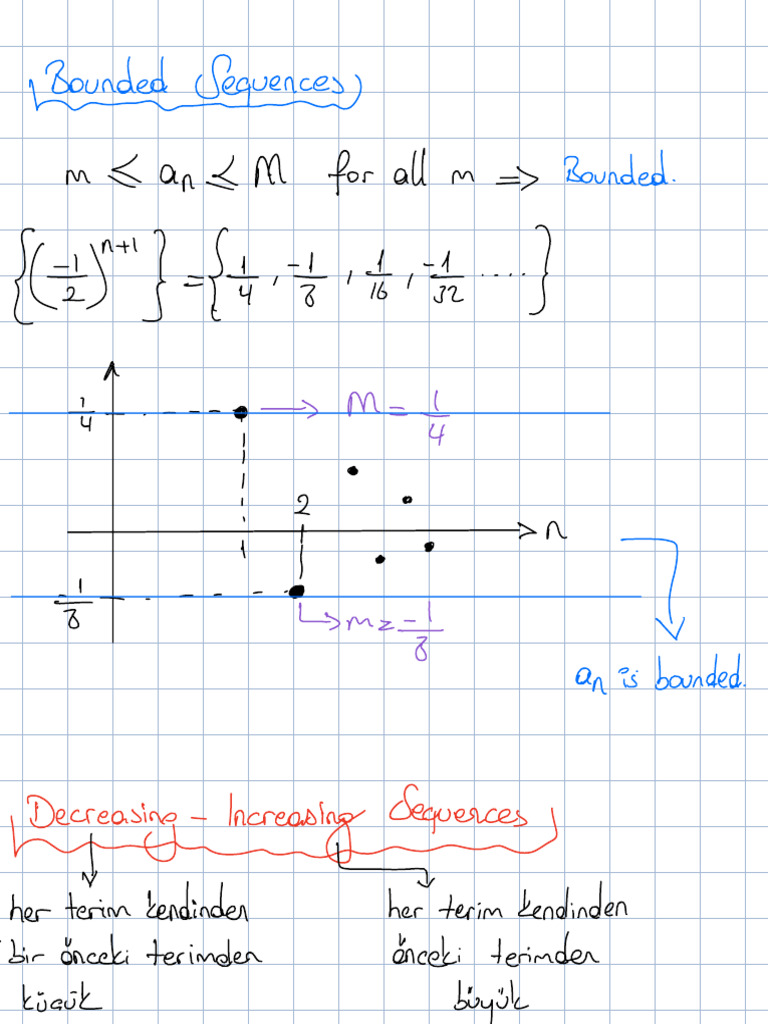 Bounded Sequences
m ≤ aₙ ≤ M for all m => Bounded.
{(-1/2)^(n+1)} = {1/4, -1/8, 1/16, -1/32 ....}
1/4 → M = 1/4
2
n
1
-1/8 ↳ m = -1/8
aₙ is bounded.
Decreasing - Increasing Sequences
her terim kendinden
bir önceki terimden
küçük
her terim kendinden
önceki terimden
büyük